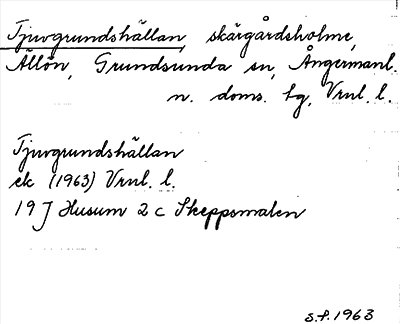 Tjuvgrundshällan, skärgårdsholme,
Ällön, Grundsunda sn, Ångermanl.
n. doms. tg, Vrnl. l.
Tjuvgrundshällan
ek (1963) Vrnl. l.
19 J Husum 2 c Skeppsmalen
s.f. 1963